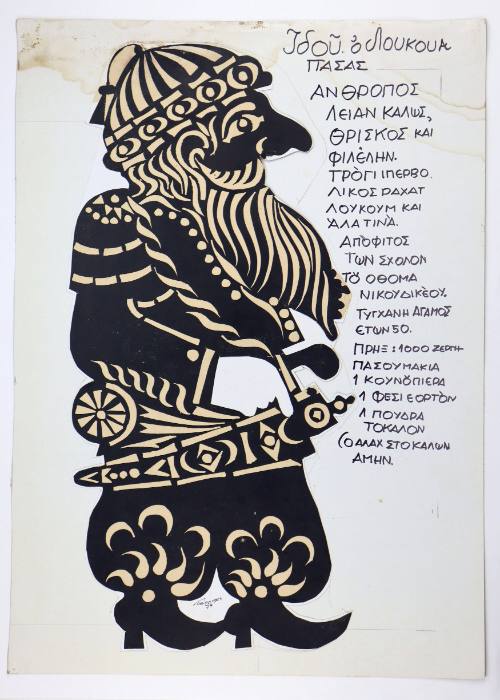 Ἰδοῦ. ὁ Λουκουμ
ΠΑΣΑΣ
ΑΝΘΡΟΠΟΣ
ΛΕΙΑΝ ΚΑΛΩΣ,
ΘΡΙΣΚΟΣ ΚΑΙ
ΦΙΛΕΛΗΝ.
ΤΡΟΓΙ ΙΠΕΡΒΟ.
ΛΙΚΟΣ ΡΑΧΑΤ
ΛΟΥΚΟΥΜ ΚΑΙ
ΑΛΑΤΙΝΑ.
ΑΠΟΦΙΤΟΣ
ΤΩΝ ΣΧΟΛΟΝ
ΤΟ ΟΘΟΜΑ
ΝΙΚΟΥΔΙΚΕΟΥ.
ΤΥΓΧΑΝΗ ΑΓΑΜΟΣ
ΕΤΩΝ 50.
ΠΡΗΞ: 1000 ΖΕΡΓΗ
ΠΑΣΟΥΜΑΚΙΑ
1 ΚΟΥΝΟΠΙΕΡΑ
1 ΦΕΣΙ ΕΟΡΤΟΝ
1 ΠΟΥΔΡΑ
ΤΟΚΑΛΟΝ
(Ο ΑΛΑΧ ΣΤΟ ΚΑΛΩΝ
ΑΜΗΝ.